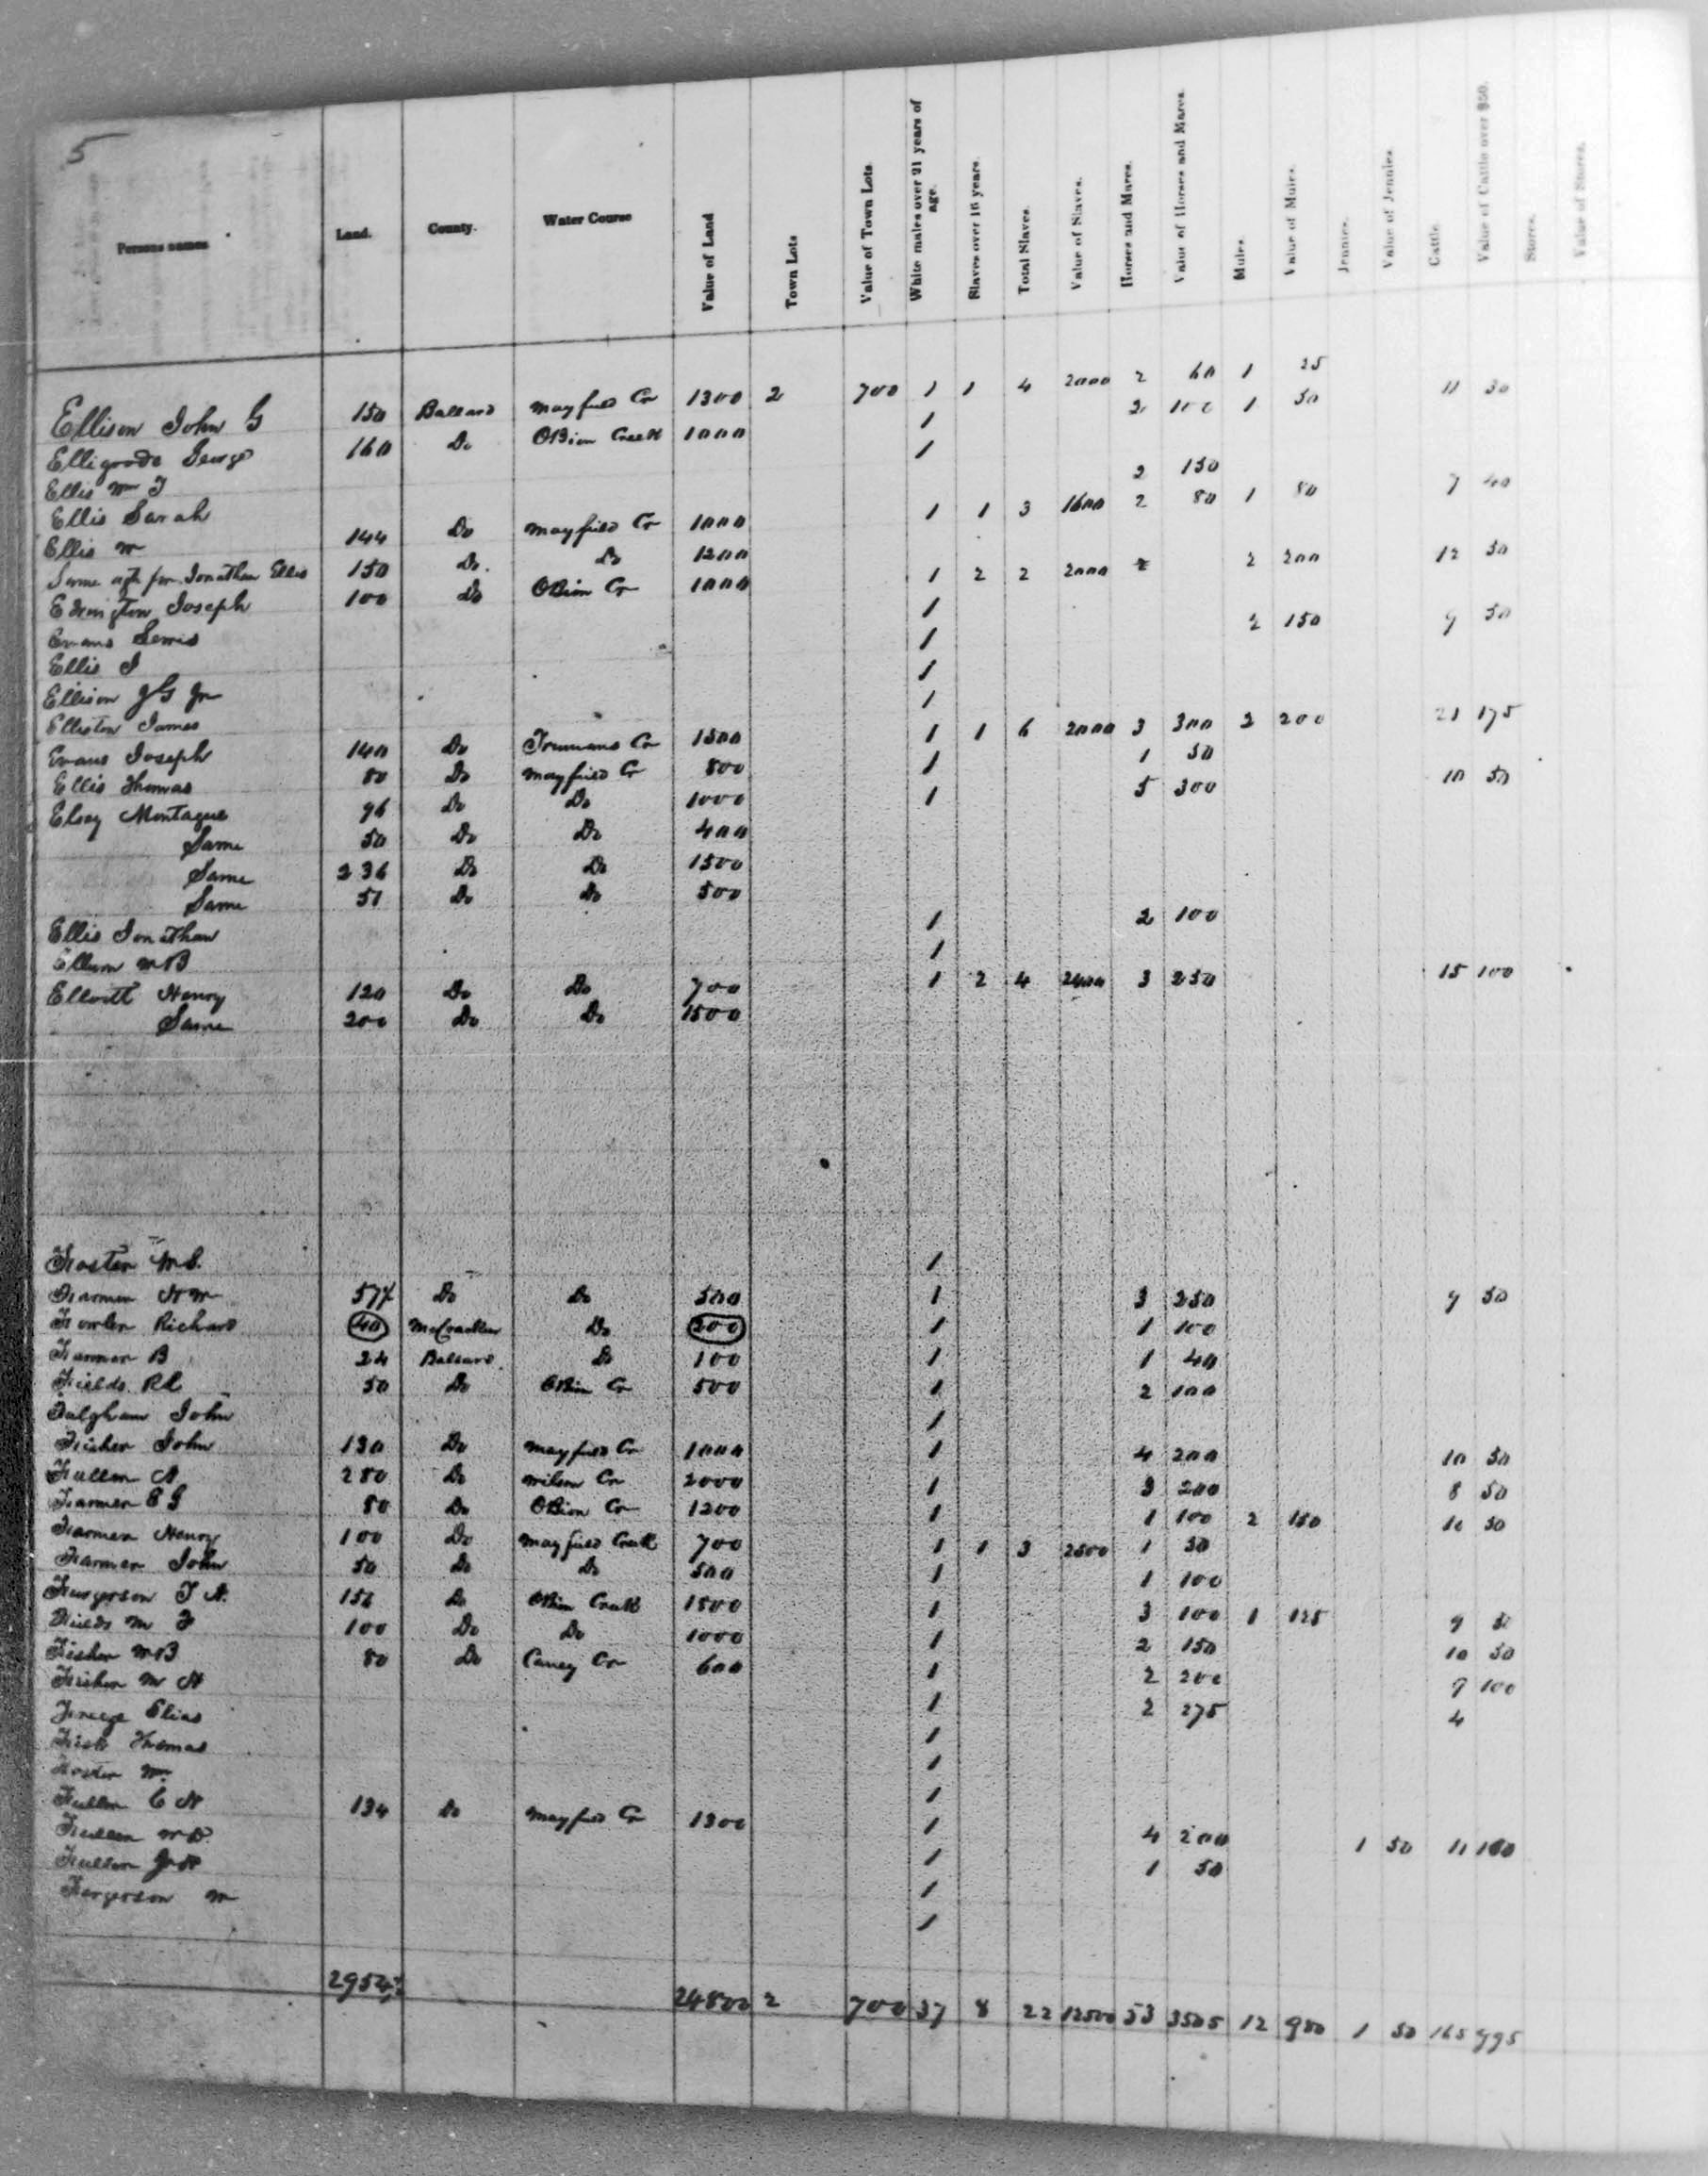 5
Persons names Land. County. Water Course Value of Land Town Lots Value of Town Lots White males over 21 years of age. Slaves over 16 years. Total Slaves. Value of Slaves. Horses and Mares. Value of Horses and Mares. Mules. Value of Mules. Jennies. Value of Jennies Cattle. Value of Cattle over $50. Stores. Value of Stores.
Ellison John G 150 Ballard Mayfield Cr 1300 2 700 1 1 4 2000 2 60 1 25 11 30
Elligoode George 160 Do OBion Creek 1000 1 2 100 1 50
Ellis Wm T 1
Ellis Sarah 2 150
Ellis W 144 Do Mayfield Cr 1000 1 1 3 1600 2 80 1 80 7 40
Same agt for Jonathan Ellis 150 Do. Do 1200
Edrington Joseph 100 Do OBion Cr 1000 1 2 2 2000 2 2 200 12 50
Evans Lewis 1
Ellis J 1 2 150 9 50
Ellison J G Jr 1
Elliston James 1
Evans Joseph 140 Do Trumans Cr 1500 1 1 6 2000 3 300 2 200 21 175
Ellis Thomas 80 Do Mayfield Cr 800 1 1 50
Elsey Montague 96 Do Do 1000 1 5 300 10 50
Same 50 Do Do 400
Same 236 Do Do 1500
Same 51 Do Do 500
Ellis Jonathan 1 2 100
W B 1
Elliott Henry 120 Do Do 700 1 2 4 2400 3 250 15 100
Same 200 Do Do 1500
Foster 1
Farmer 57½ Do Do 500 1 3 250 9 50
Fowler Richard 40 McCracken Do 200 1 1 100
Farmer B 24 Ballard Do 100 1 1 40
Fields R L 50 Do OBion Cr 500 1 2 100
Fulgham John 1
Fisher John 130 Do Mayfield Cr 1000 1 4 200 10 50
Fuller A 280 Do Wilson Cr 2000 1 3 200 8 50
Farmer E G 80 Do OBion Cr 1200 1 1 100 2 150 10 50
Farmer Henry 100 Do Mayfield Creek 700 1 1 3 2500 1 50
Farmer John 50 Do Do 500 1 1 100
Furgerson T A. 156 Do OBion Creek 1500 1 3 100 1 125 9 50
Fields M F 100 Do Do 1000 1 2 150 10 50
Fisher W B 80 Do Caney Cr 600 1 2 200 9 100
Fisher W H 1 2 275 4
Elias 1
Fisk Thomas 1
Foster Wm 1
Fuller C N 134 Do Mayfield Cr 1300 1 4 200 1 50 11 100
Fuller W D. 1 1 50
Fuller 1
Fergerson W 1
2954½ 24800 2 700 37 8 22 12500 53 3505 12 980 1 50 165 995